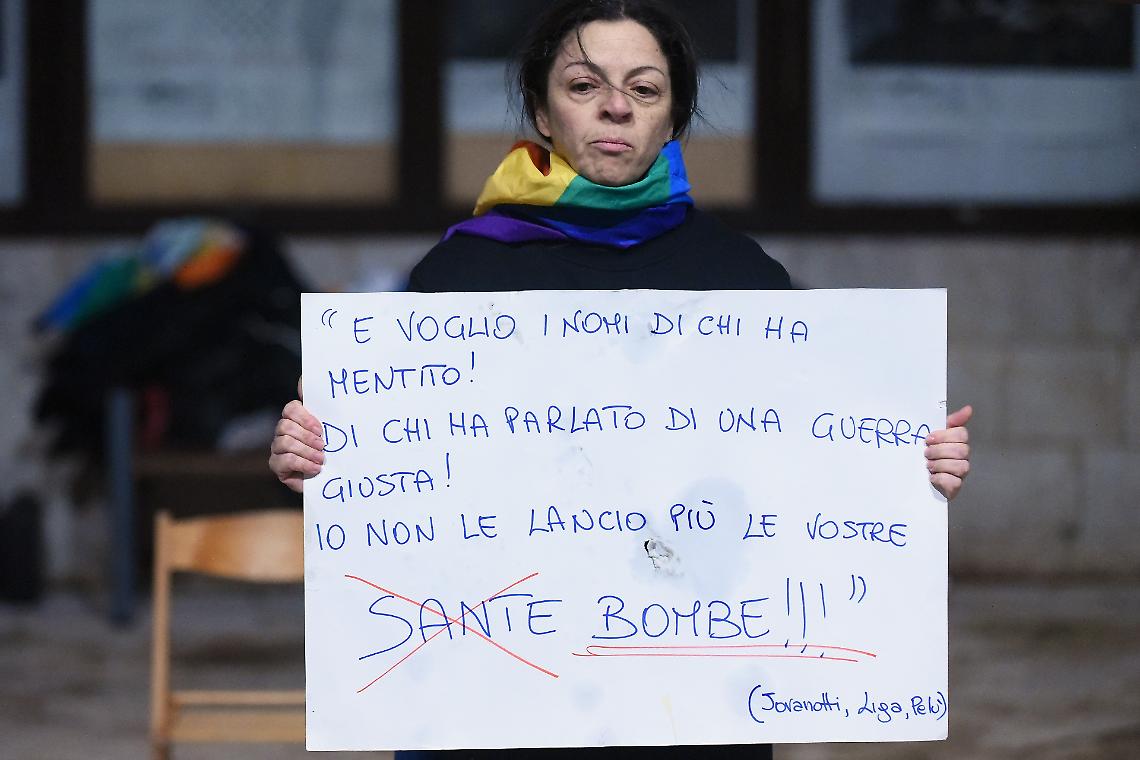 “E VOGLIO I NOMI DI CHI HA
MENTITO!
DI CHI HA PARLATO DI UNA GUERRA
GIUSTA!
IO NON LE LANCIO PIÙ LE VOSTRE
SANTE BOMBE!!!”
(Jovanotti, Liga, Pelù)